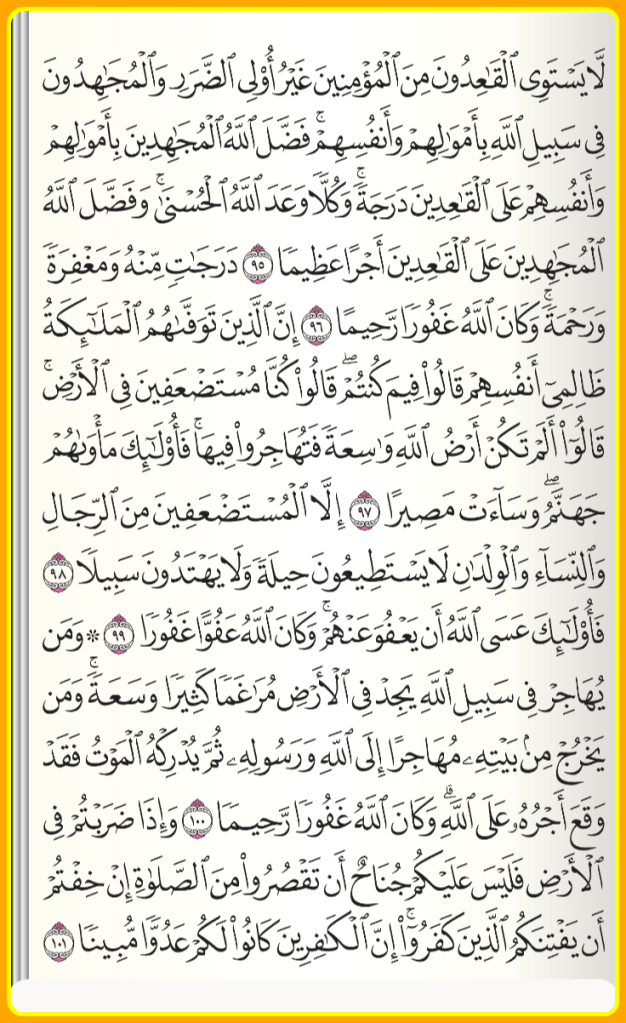 لَّا يَسْتَوِى ٱلْقَـٰعِدُونَ مِنَ ٱلْمُؤْمِنِينَ غَيْرُ أُو۟لِى ٱلضَّرَرِ وَٱلْمُجَـٰهِدُونَ
فِى سَبِيلِ ٱللَّهِ بِأَمْوَٰلِهِمْ وَأَنفُسِهِمْ ۚ فَضَّلَ ٱللَّهُ ٱلْمُجَـٰهِدِينَ بِأَمْوَٰلِهِمْ
وَأَنفُسِهِمْ عَلَى ٱلْقَـٰعِدِينَ دَرَجَةً ۚ وَكُلًّا وَعَدَ ٱللَّهُ ٱلْحُسْنَىٰ ۚ وَفَضَّلَ ٱللَّهُ
ٱلْمُجَـٰهِدِينَ عَلَى ٱلْقَـٰعِدِينَ أَجْرًا عَظِيمًا ٩٥ دَرَجَـٰتٍ مِّنْهُ وَمَغْفِرَةً
وَرَحْمَةً ۚ وَكَانَ ٱللَّهُ غَفُورًا رَّحِيمًا ٩٦ إِنَّ ٱلَّذِينَ تَوَفَّىٰهُمُ ٱلْمَلَـٰٓئِكَةُ
ظَالِمِىٓ أَنفُسِهِمْ قَالُوا۟ فِيمَ كُنتُمْ ۖ قَالُوا۟ كُنَّا مُسْتَضْعَفِينَ فِى ٱلْأَرْضِ ۚ
قَالُوٓا۟ أَلَمْ تَكُنْ أَرْضُ ٱللَّهِ وَٰسِعَةً فَتُهَاجِرُوا۟ فِيهَا ۚ فَأُو۟لَـٰٓئِكَ مَأْوَىٰهُمْ
جَهَنَّمُ ۖ وَسَآءَتْ مَصِيرًا ٩٧ إِلَّا ٱلْمُسْتَضْعَفِينَ مِنَ ٱلرِّجَالِ
وَٱلنِّسَآءِ وَٱلْوِلْدَٰنِ لَا يَسْتَطِيعُونَ حِيلَةً وَلَا يَهْتَدُونَ سَبِيلًا ٩٨
فَأُو۟لَـٰٓئِكَ عَسَى ٱللَّهُ أَن يَعْفُوَ عَنْهُمْ ۚ وَكَانَ ٱللَّهُ عَفُوًّا غَفُورًا ٩٩ * وَمَن
يُهَاجِرْ فِى سَبِيلِ ٱللَّهِ يَجِدْ فِى ٱلْأَرْضِ مُرَٰغَمًا كَثِيرًا وَسَعَةً ۚ وَمَن
يَخْرُجْ مِنۢ بَيْتِهِۦ مُهَاجِرًا إِلَى ٱللَّهِ وَرَسُولِهِۦ ثُمَّ يُدْرِكْهُ ٱلْمَوْتُ فَقَدْ
وَقَعَ أَجْرُهُۥ عَلَى ٱللَّهِ ۗ وَكَانَ ٱللَّهُ غَفُورًا رَّحِيمًا ١٠٠ وَإِذَا ضَرَبْتُمْ فِى
ٱلْأَرْضِ فَلَيْسَ عَلَيْكُمْ جُنَاحٌ أَن تَقْصُرُوا۟ مِنَ ٱلصَّلَوٰةِ إِنْ خِفْتُمْ
أَن يَفْتِنَكُمُ ٱلَّذِينَ كَفَرُوٓا۟ ۚ إِنَّ ٱلْكَـٰفِرِينَ كَانُوا۟ لَكُمْ عَدُوًّا مُّبِينًا ١٠١